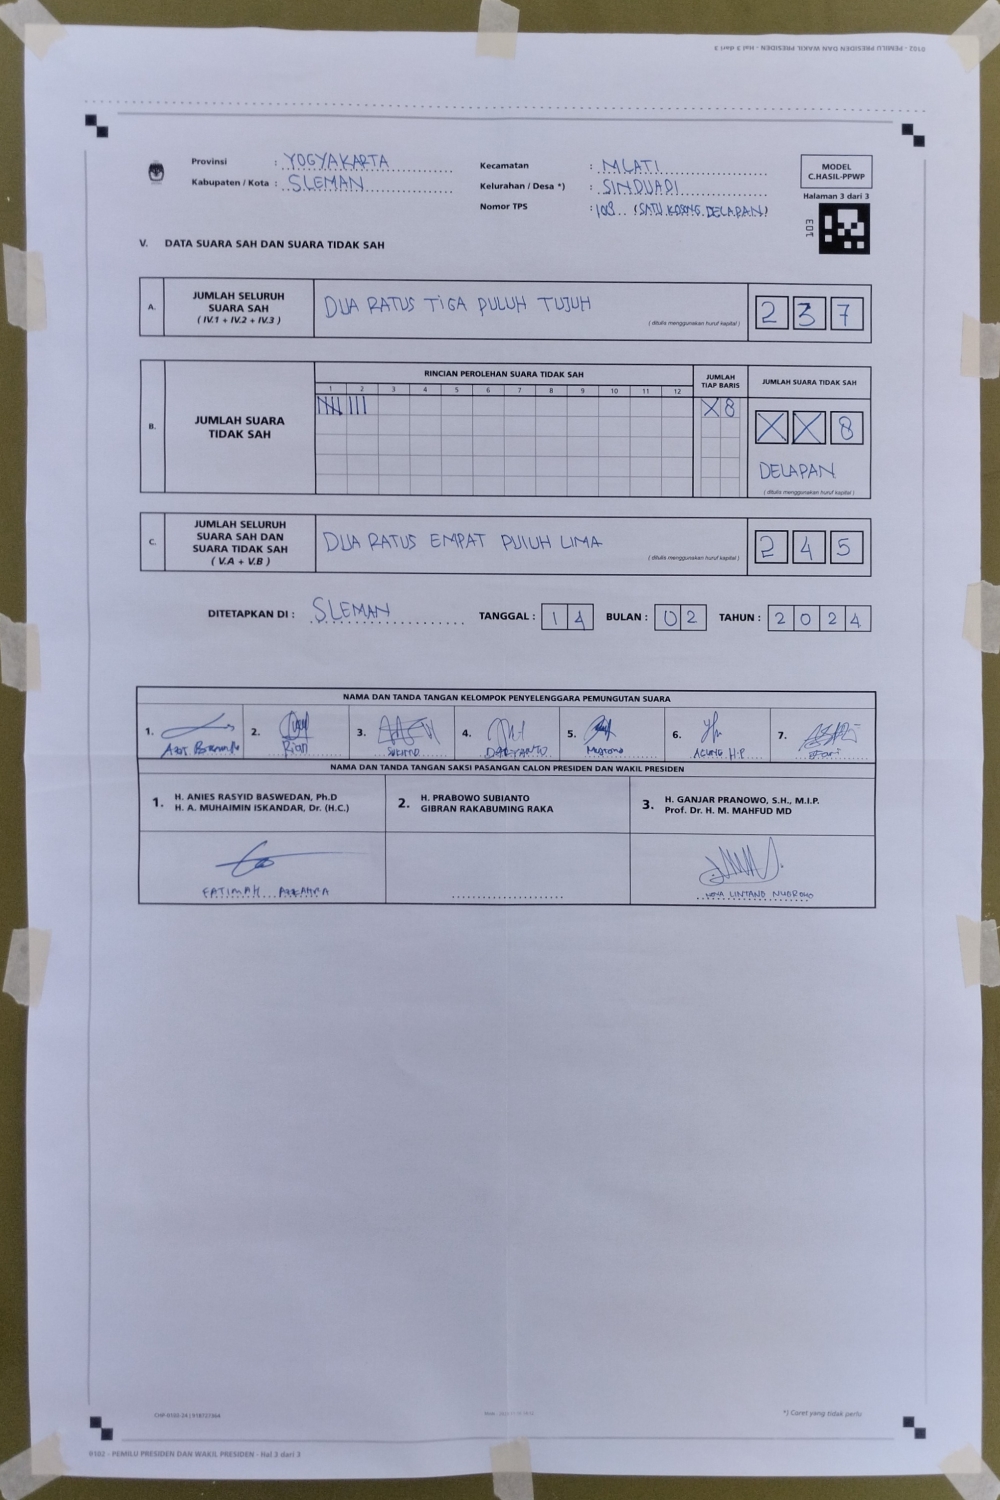 0102 - PEMILU PRESIDEN DAN WAKIL PRESIDEN - Hal 3 dari 3
Provinsi : YOGYAKARTA
Kabupaten / Kota : SLEMAN
Kecamatan : MLATI
Kelurahan / Desa *) : SINDUADI
Nomor TPS : 108 (SATU KOSONG DELAPAN)
MODEL
C.HASIL-PPWP
Halaman 3 dari 3
V. DATA SUARA SAH DAN SUARA TIDAK SAH
A. JUMLAH SELURUH
SUARA SAH
( IV.1 + IV.2 + IV.3 )
DUA RATUS TIGA PULUH TUJUH
( ditulis menggunakan huruf kapital )
2 3 7
B. JUMLAH SUARA
TIDAK SAH
RINCIAN PEROLEHAN SUARA TIDAK SAH
1 2 3 4 5 6 7 8 9 10 11 12
JUMLAH
TIAP BARIS
X 8
JUMLAH SUARA TIDAK SAH
X X 8
DELAPAN
( ditulis menggunakan huruf kapital )
C. JUMLAH SELURUH
SUARA SAH DAN
SUARA TIDAK SAH
( V.A + V.B )
DUA RATUS EMPAT PULUH LIMA
( ditulis menggunakan huruf kapital )
2 4 5
DITETAPKAN DI : SLEMAN TANGGAL : 1 4 BULAN : 0 2 TAHUN : 2 0 2 4
NAMA DAN TANDA TANGAN KELOMPOK PENYELENGGARA PEMUNGUTAN SUARA
1. 2. 3. 4. 5. 6. 7.
Rian DARYANTO Mugiono AGUNG H.P
NAMA DAN TANDA TANGAN SAKSI PASANGAN CALON PRESIDEN DAN WAKIL PRESIDEN
1. H. ANIES RASYID BASWEDAN, Ph.D
H. A. MUHAIMIN ISKANDAR, Dr. (H.C.)
2. H. PRABOWO SUBIANTO
GIBRAN RAKABUMING RAKA
3. H. GANJAR PRANOWO, S.H., M.I.P.
Prof. Dr. H. M. MAHFUD MD
FATIMAH AZZAHRA
LINTANG NUGROHO
*) Coret yang tidak perlu
0102 - PEMILU PRESIDEN DAN WAKIL PRESIDEN - Hal 3 dari 3